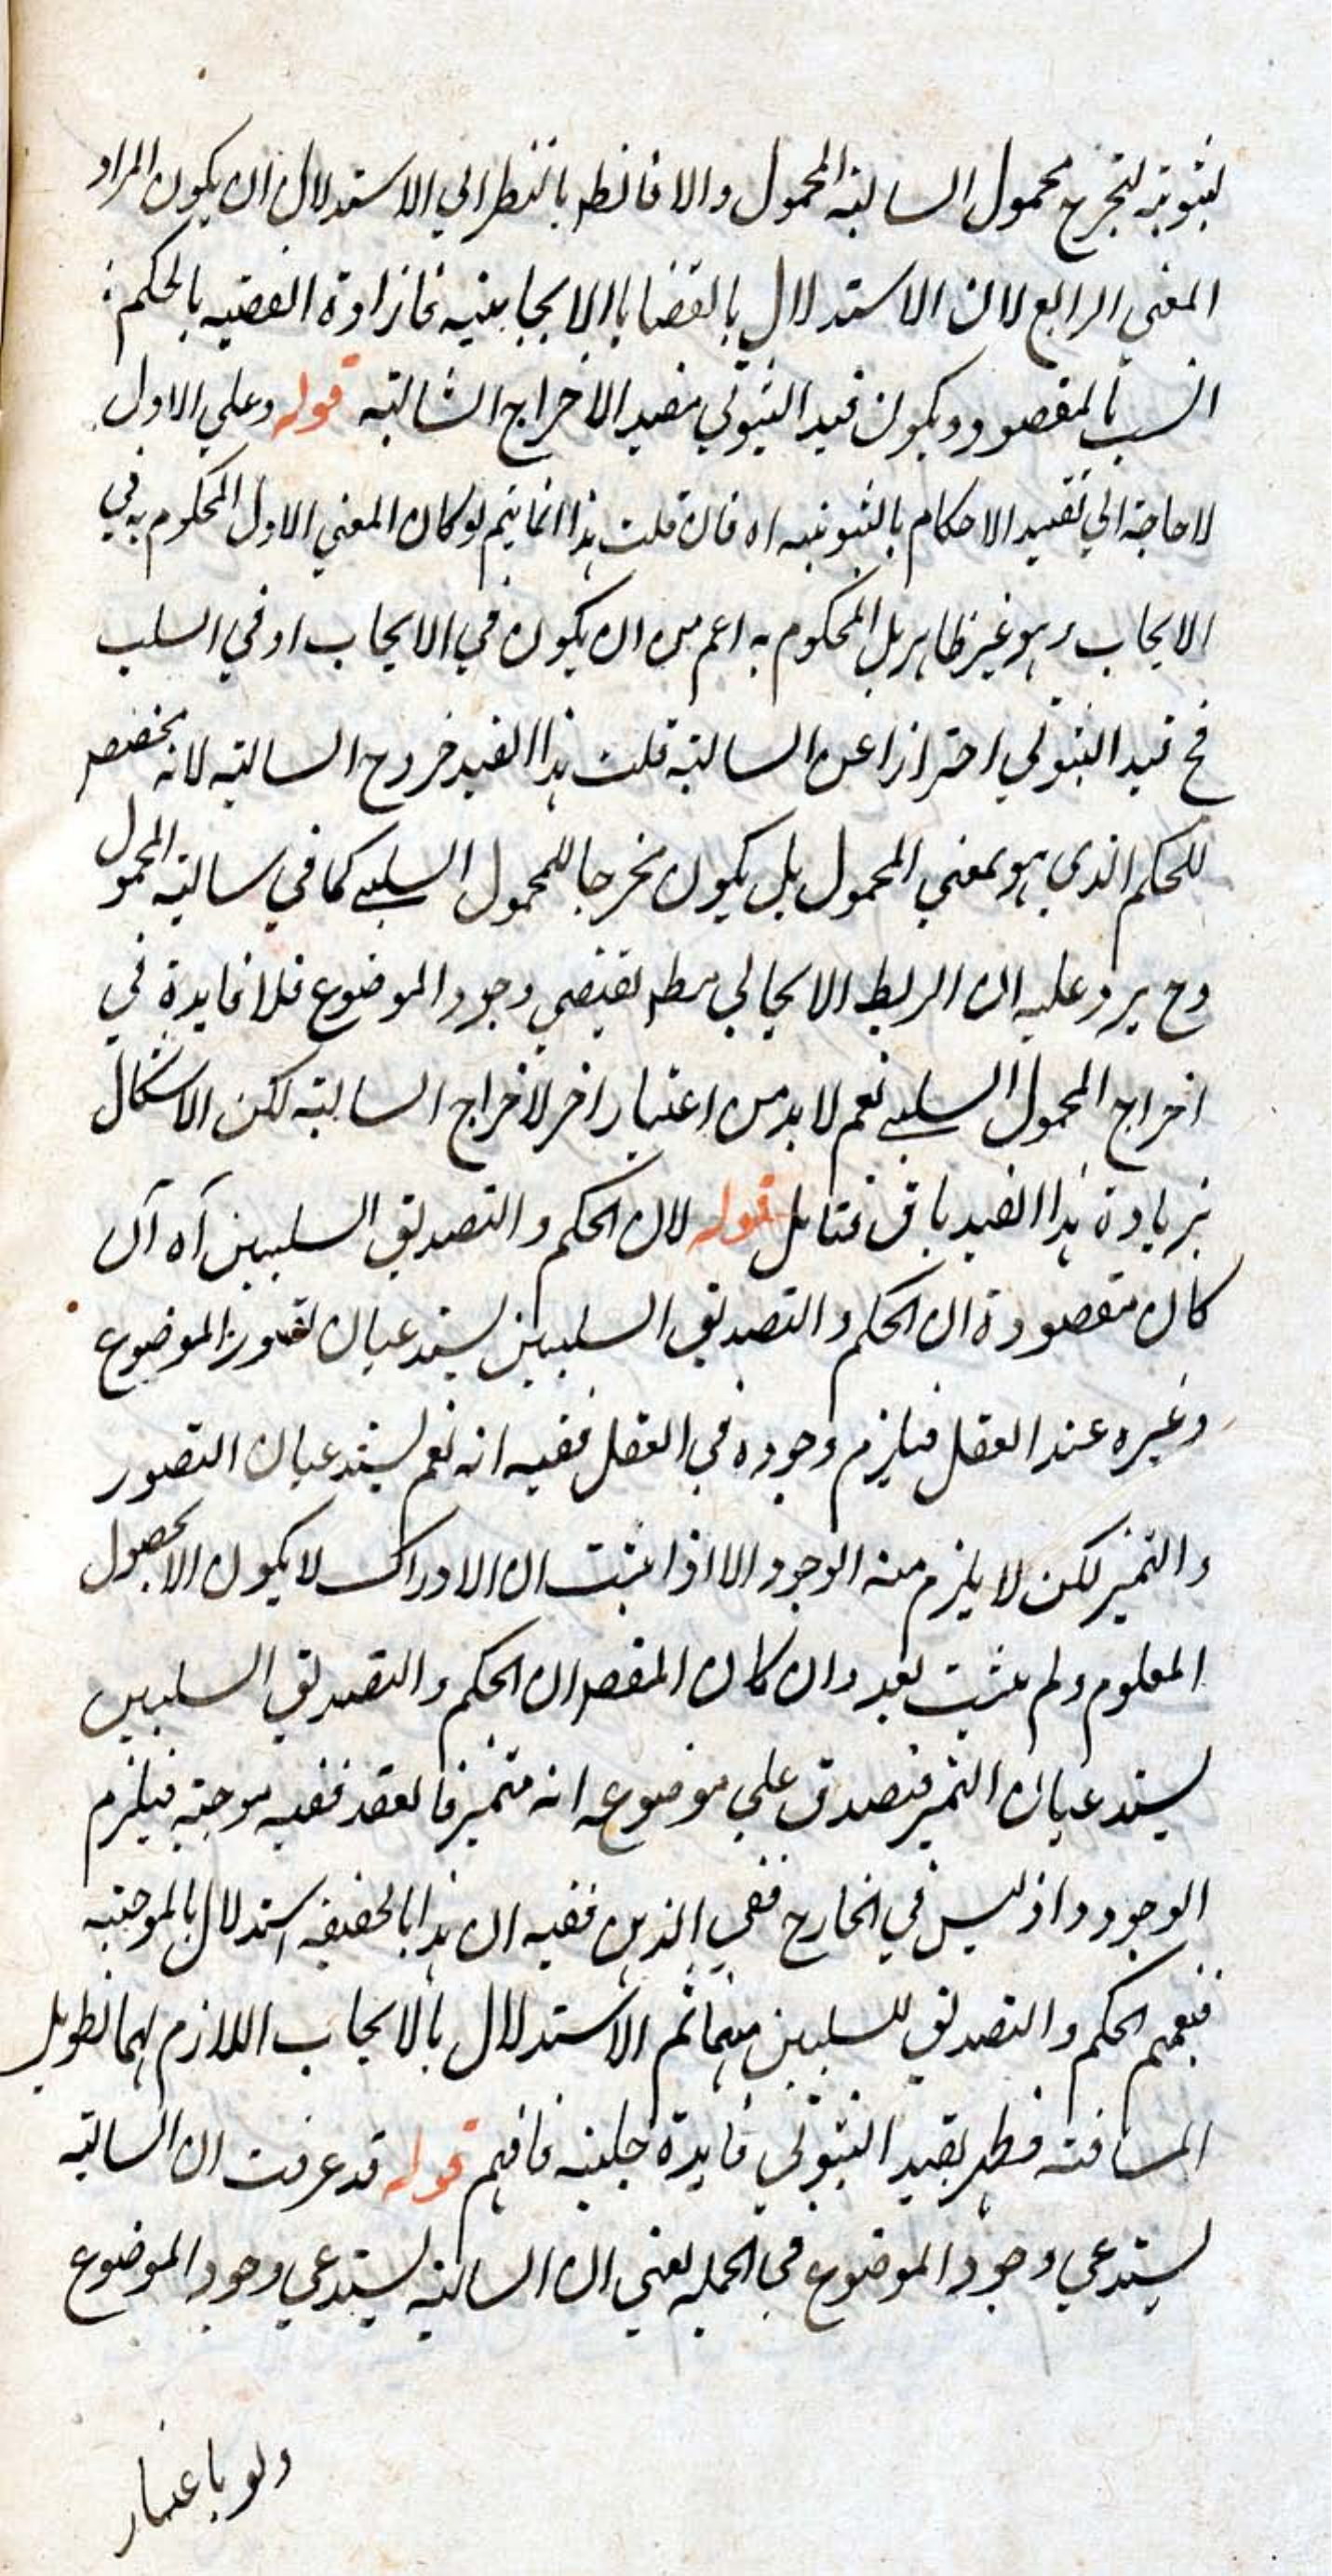 لثبوتية لتخرج محمول السالبة المحمول والا فانظر بالنظر الي الاستدلال ان يكون المراد
المعني الرابع لان الاستدلال بالقضايا الايجابية فارادة القضيه بالحكم
انسب بالمقصود ويكون قيد الثبوتي مفيد الاخراج السالبة قوله وعلي الاول
لا حاجة الي تقييد الاحكام بالثبوتيه اه فان قلت هذا انما يتم لو كان المعني الاول المحكوم به في
الايجاب وهو غير ظاهر بل المحكوم به اعم من ان يكون في الايجاب او في السلب
فح قيد الثبوتي احترازا عن السالبة قلت هذا القيد خروج السالبة لانه مخصص
للحكم الذي هو بمعني المحمول بل يكون مخرجا للمحمول السلبي كما في سالبة المحمول
وح يرد عليه ان الربط الايجابي مط يقتضي وجود الموضوع فلا فايدة في
اخراج المحمول السلبي نعم لا بد من اعتبار اخر لاخراج السالبة لكن الاشكال
بزيادة هذا القيد باق فتامل قوله لان الحكم والتصديق السلبيين آه ان
كان مقصوده ان الحكم والتصديق السلبيين يستدعيان تصور الموضوع
وغيره عند العقل فيلزم وجوده في العقل ففيه انه نعم يستدعيان التصور
والتميز لكن لا يلزم منه الوجود الا اذا يثبت ان الادراك لا يكون الا بحصول
المعلوم ولم يثبت بعد وان كان المقصر ان الحكم والتصديق السلبيين
يستدعيان التميز فتصدق علي موضوعه انه متميز فالعقد ففيه موجبة فيلزم
الوجود واذ ليس في الخارج ففي الذهن ففيه ان هذا بالحقيقه استدلال بالموجبه
فتعميم الحكم والتصديق للسلبيين ثم الاستدلال بالايجاب اللازم لهما تطويل
المسافة فظهر بقيد الثبوتي فايدة جليلة فافهم قوله قد عرفت ان السالبة
يستدعي وجود الموضوع في الجمله يعني ان السالبة يستدعي وجود الموضوع
ولو باعتبار